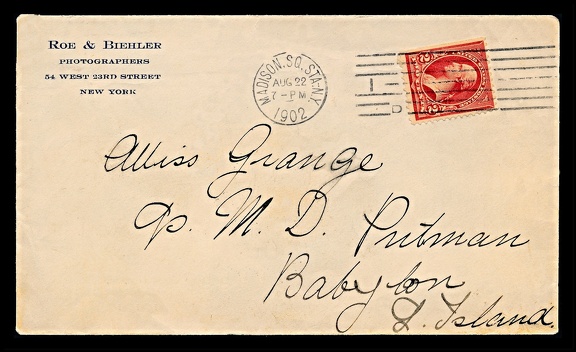 ROE & BIEHLER
PHOTOGRAPHERS
54 WEST 23RD STREET
NEW YORK
MADISON.SQ.STA-N.Y.
AUG 22
7-PM
1902
1
D
2 2
Miss Grange
M. D. Putman
Babylon
L. Island.